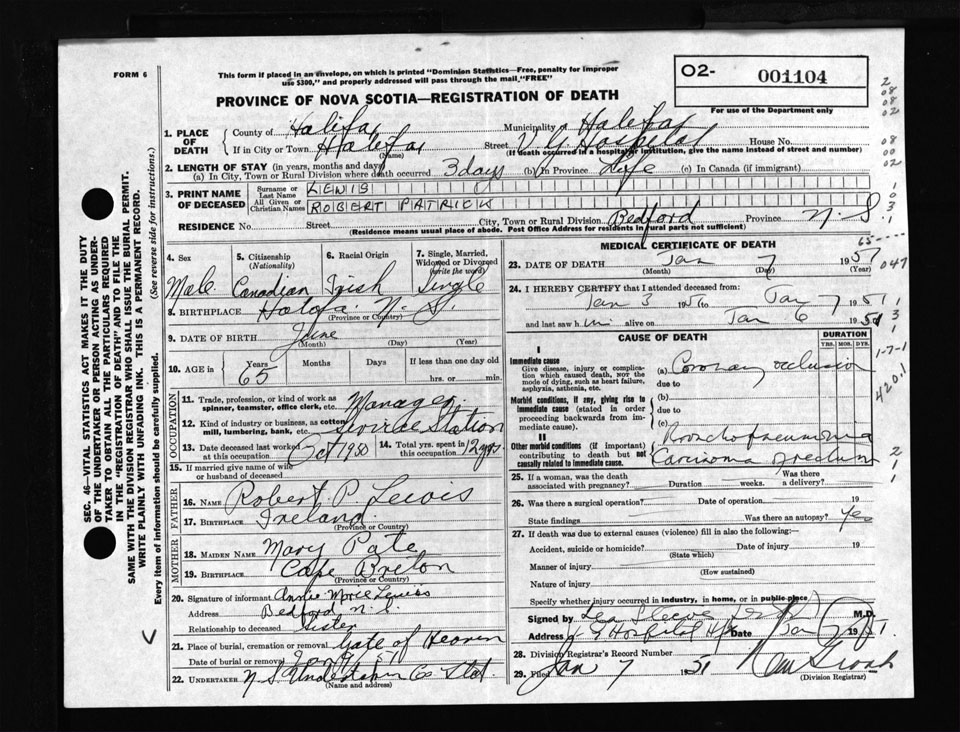 FORM 6
This form if placed in an envelope, on which is printed "Dominion Statistics—Free, penalty for improper
use $300," and properly addressed will pass through the mail "FREE"
PROVINCE OF NOVA SCOTIA—REGISTRATION OF DEATH
O2- 001104
For use of the Department only
1. PLACE OF DEATH
County of Halifax Municipality of Halifax
If in City or Town Halifax (Name) Street V.G. Hospital House No.
(If death occurred in a hospital or institution, give the name instead of street and number)
2. LENGTH OF STAY (in years, months and days)
(a) In City, Town or Rural Division where death occurred 3 days (b) In Province Life (c) In Canada (if immigrant)
3. PRINT NAME OF DECEASED
Surname or Last Name LEWIS
All Given or Christian Names ROBERT PATRICK
RESIDENCE No. Street City, Town or Rural Division Bedford Province N.S.
(Residence means usual place of abode. Post Office Address for residents in rural parts not sufficient)
4. Sex Male
5. Citizenship (Nationality) Canadian
6. Racial Origin Irish
7. Single, Married, Widowed or Divorced (write the word) Single
8. BIRTHPLACE N.S. (Province or Country)
9. DATE OF BIRTH June (Month) (Day) (Year)
10. AGE in Years 65 Months Days If less than one day old hrs. or min.
OCCUPATION
11. Trade, profession, or kind of work as spinner, teamster, office clerk, etc. Manager
12. Kind of industry or business, as cotton mill, lumbering, bank, etc. Service Station
13. Date deceased last worked at this occupation Oct 1950
14. Total yrs. spent in this occupation 12 yrs
15. If married give name of wife or husband of deceased
FATHER
16. NAME Robert P. Lewis
17. BIRTHPLACE Ireland (Province or Country)
MOTHER
18. MAIDEN NAME Mary Pate
19. BIRTHPLACE Cape Breton (Province or Country)
20. Signature of informant Annie Marie Lewis
Address Bedford N.S.
Relationship to deceased Sister
21. Place of burial, cremation or removal Gate of Heaven
Date of burial or removal
22. UNDERTAKER N S Undertaking Co Ltd. (Name and address)
MEDICAL CERTIFICATE OF DEATH
23. DATE OF DEATH Jan (Month) 7 (Day) 1951 (Year)
24. I HEREBY CERTIFY that I attended deceased from:
Jan 3 to Jan 7 1951
and last saw him alive on Jan 6 1951
CAUSE OF DEATH
DURATION
YRS. MOS. DYS.
I
Immediate cause
Give disease, injury or complication which caused death, not the mode of dying, such as heart failure, asphyxia, asthenia, etc.
(a) Coronary occlusion
due to
Morbid conditions, if any, giving rise to immediate cause (stated in order proceeding backwards from immediate cause).
(b)
due to
(c)
II
Other morbid conditions (if important) contributing to death but not causally related to immediate cause.
Bronchopneumonia
Carcinoma of rectum
25. If a woman, was the death associated with pregnancy? Duration weeks. Was there a delivery?
26. Was there a surgical operation? Date of operation 19
State findings Was there an autopsy? Yes
27. If death was due to external causes (violence) fill in also the following:
Accident, suicide or homicide? (State which) Date of injury 19
Manner of injury (How sustained)
Nature of injury
Specify whether injury occurred in industry, in home, or in public place
Signed by M.D.
Address V G Hospital Hfx Date Jan 7 1951.
28. Division Registrar's Record Number
29. Filed Jan 7 1951 (Division Registrar)
SEC. 46—VITAL STATISTICS ACT MAKES IT THE DUTY
OF THE UNDERTAKER OR PERSON ACTING AS UNDER-
TAKER TO OBTAIN ALL THE PARTICULARS REQUIRED
IN THE "REGISTRATION OF DEATH" AND TO FILE THE
SAME WITH THE DIVISION REGISTRAR WHO SHALL ISSUE THE BURIAL PERMIT.
WRITE PLAINLY WITH UNFADING INK. THIS IS A PERMANENT RECORD.
Every item of information should be carefully supplied. (See reverse side for instructions.)